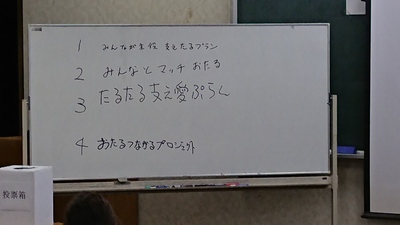 1 みんなが主役 支えたるプラン
2 みんなとマッチ おたる
3 たるたる支え愛ぷらん
4 おたるつながるプロジェクト
投票箱